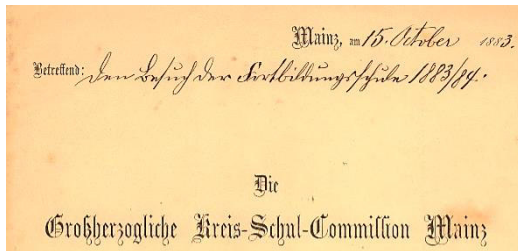 Mainz, am 15. October 1883.
Betreffend: Den Besuch der Fortbildungsschule 1883/84.
Die
Großherzogliche Kreis-Schul-Commission Mainz